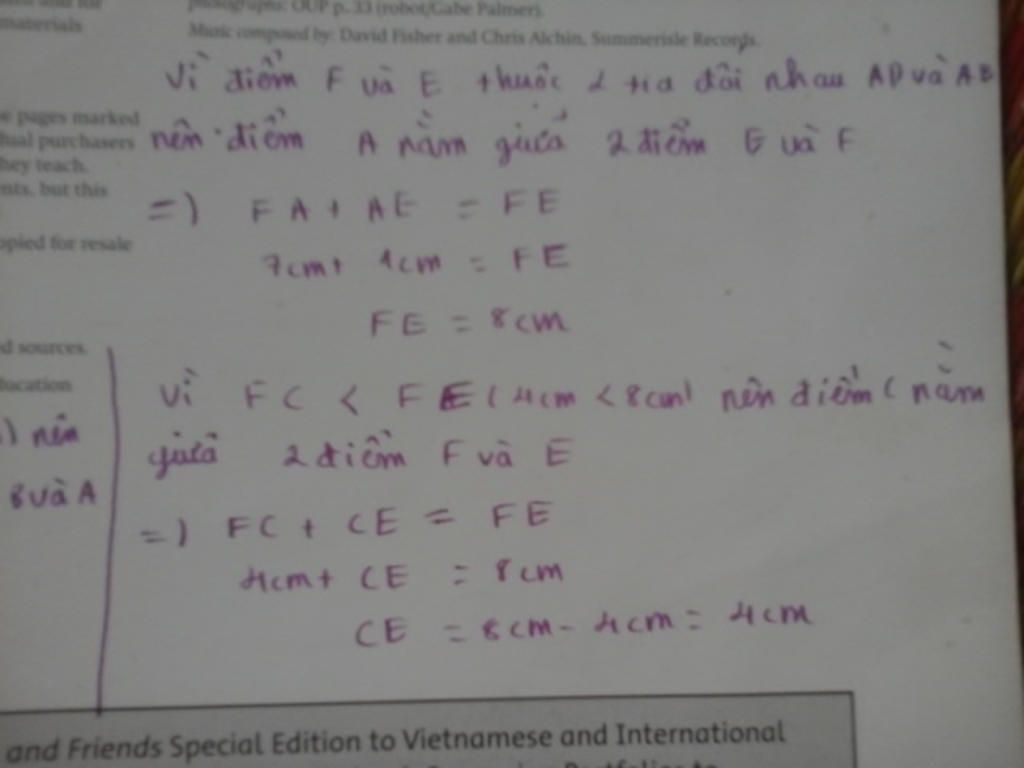 materials
photographs: OUP p. 33 (robot/Gabe Palmer).
Music composed by: David Fisher and Chris Alchin, Summerisle Records.
Vì điểm F và E thuộc 2 tia đối nhau AD và AB
e pages marked
dual purchasers
hey teach.
nts, but this
nên điểm A nằm giữa 2 điểm E và F
=) FA + AE = FE
opied for resale
7cm + 1cm = FE
FE = 8cm
d sources.
ducation
Vì FC < FE (4cm < 8cm) nên điểm C nằm
giữa 2 điểm F và E
) nên
B và A
=) FC + CE = FE
4cm + CE = 8cm
CE = 8cm - 4cm = 4cm
and Friends Special Edition to Vietnamese and International